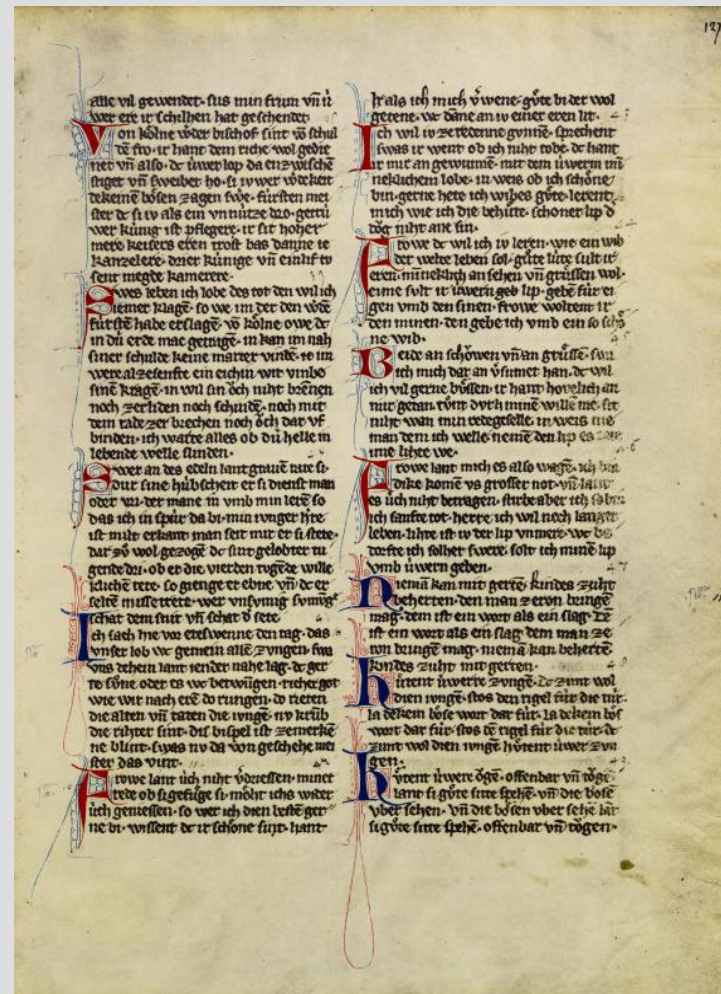 127
alle vil gewendet· sus min frum vn̄ ů
wer ere ir schilhen hat geschendet·
Von kölne werder bischof sint vo schul
dē fro· ir hant dem riche wol gedie
net vn̄ also· dc ůwer lop da enzwischē
stiget vn̄ sweibet ho· si iv wer wdekeit
dekeinē bösen zagen swe· fúrsten mei
ster dc si iv als ein vnnútze dro· getrú
wer kúnig ist pflegere· ir sit hoher
mere keisers eren trost bas danne ie
kanzelere· drier kúnige vn̄ einlif tv
sent megde kamerere·
Swes leben ich lobe des tot den wil ich
iemer klagē· so we im der den wdē
fúrstē habe erslagē· vo kölne owe dc
in dú erde mac getragē· in kan im nah
siner schulde keine marter vindē· ie im
were al zesenfte ein eichin wit vmbe
sinē kragē· in wil sin öch niht brēnen
noch zerliden noch schindē· noch mit
dem rade zer brechen noch öch dar vf
binden· ich warte alles ob dú helle in
lebende welle slinden·
Swer an des edeln lantgrauē rate si·
dur sine húbscheit er si dienst man
oder vri· der mane in vmb min lerē so
das ich in spúr da bi· min iunger h're
ist milt erkant man seit mir er si stete·
dar zů wol gezogē dc sint gelobter tu
gende dri· ob er die vierden tugēde wille
klichē tete· so gienge er ebne vn̄ dc er
seltē misse trete· wer vnsvmig svmūge
schat dem snit vn̄ schat d sete·
Ich sach hie vor eteswenne den tag· das
vnser lob wc gemein allē zvngen· swa
vns dehein lant iender nahe lag· dc ger
te sůne oder es wc betwūgen· richer got
wie wir nach erē do rungen· do rieten
die alten vn̄ taten die iungē· nv krūb
die rihter sint· dis bispel ist zemerkē
ne blint· swas nv da von geschehe mei
ster das vint·
Frowe lant úch niht vdriessen· miner
rede ob si gefúge si· möht ichs wider
úch geniessen· so wer ich dien bestē ger
ne bi· wissent dc ir schöne sint· hant
Ir als ich mich vwene· gůte bi der wol
getene· wc dāne an iv einer eren lit·
Ich wil iv ze redenne gvnnē· sprechent
swas ir went ob ich niht tobe· dc hant
ir mir an gewunnē· mit dem úwerm mī
neklichem lobe· in weis ob ich schöne
bin· gerne hete ich wibes gůte· lerent
mich wie ich die behúte· schoner lip d
tög niht ane sin·
Frowe dc wil ich iv leren· wie ein wib
der welte leben sol· gůte lúte sult ir
eren· minneklich an sehen vn̄ grússen wol·
eime sult ir úwern geb lip· gebē fúr ei
gen vmb den sinen· frowe woltent ir
den minen· den gebe ich vmb ein so schö
ne wib·
Beide an schöwen vn̄ an grússē· swc
ich mich dar an vsumet han· dc wil
ich vil gerne bůssen· ir hant hovelich an
mir getan· tůnt dvrh minē willē me· sit
niht wan min redegeselle· in weis nie
man dem ich welle· nemē den lip es
ime lihte we·
Frowe lant mich es also wagē· ich bin
dike komē vs grosser not· vn̄ lant
es úch niht betragen· stirbe aber ich so bin
ich sanfte tot· herre ich wil noch langer
leben· lihte ist iv der lip vnmere· wc be
dorfte ich solher swere· solt ich minē lip
vmb úwern geben·
Niemā kan mit gertē· kindes zuht
beherten· den man zeren bringē
mag· dem ist ein wort als ein slag· dē
ist ein wort als ein slag dem man ze
ren bringē mag· niemā kan behertē
kindes zuht mit gerten·
Hůtent úwerre zvngē· dc zimt wol
dien ivngē· stos den rigel fúr die túr·
la dekein böse wort dar fúr· la dekein böse
wort dar fúr· stos dē rigel fúr die túr· dc
zimt wol dien ivngē hůtent úwer zvn
gen·
Hůtent úwere ögē· offenbar vn̄ tögē·
lant si gůte sitte spehē· vn̄ die böse
vber sehen· vn̄ die bösen vber sehē lat
si gůte sitte spehē· offenbar vn̄ tögen·